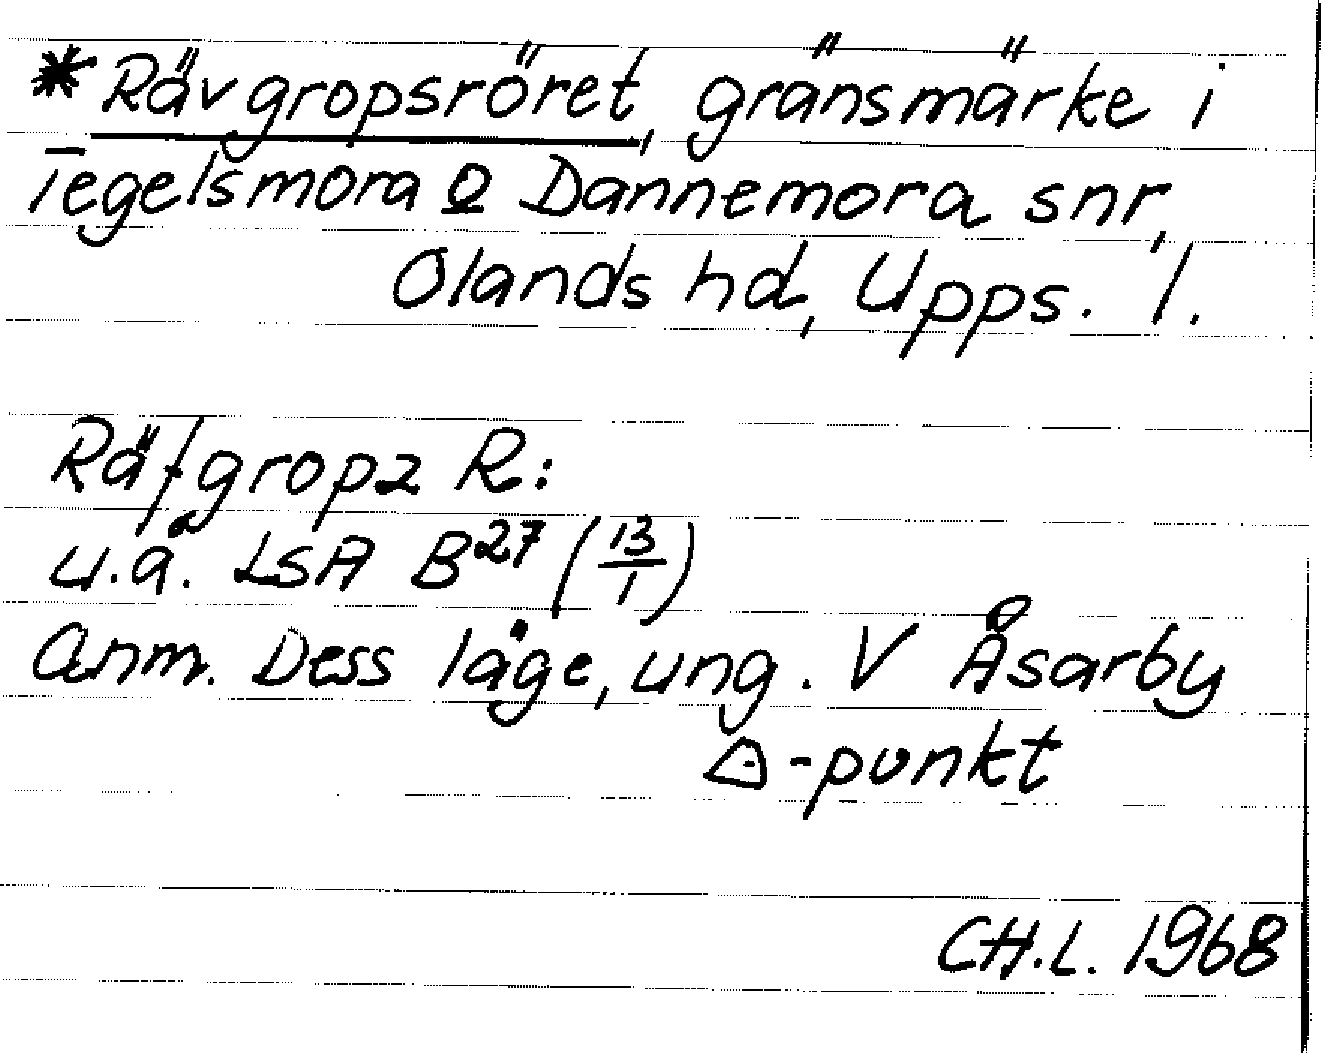 *Rävgropsröret, gränsmärke i
Tegelsmora o Dannemora snr,
Olands hd, Upps. l.
Räfgropz R:
u.å. LSA B27 (13/1)
Anm. Dess läge, ung. V Åsarby
△-punkt
CH.L. 1968